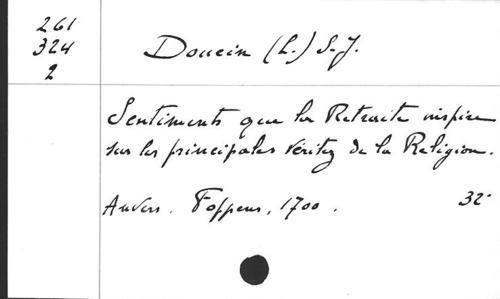 261
324
2
Doucin (L.) S.J.
Sentiments que la Retraite inspire
sur les principales Véritez de la Religion.
Anvers. Foppens, 1700. 32°